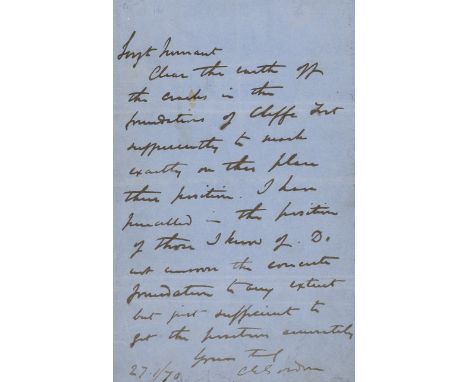 Sergt Nunant
Clear the earth off
the cracks in the
foundations of Cliffe Fort
sufficiently to mark
exactly on this plan
their position. I have
pencilled in the position
of those I know of. Do
not uncover the concrete
foundation to any extent
but just sufficient to
get the position accurately
Yours truly
27.1/70. CG Gordon